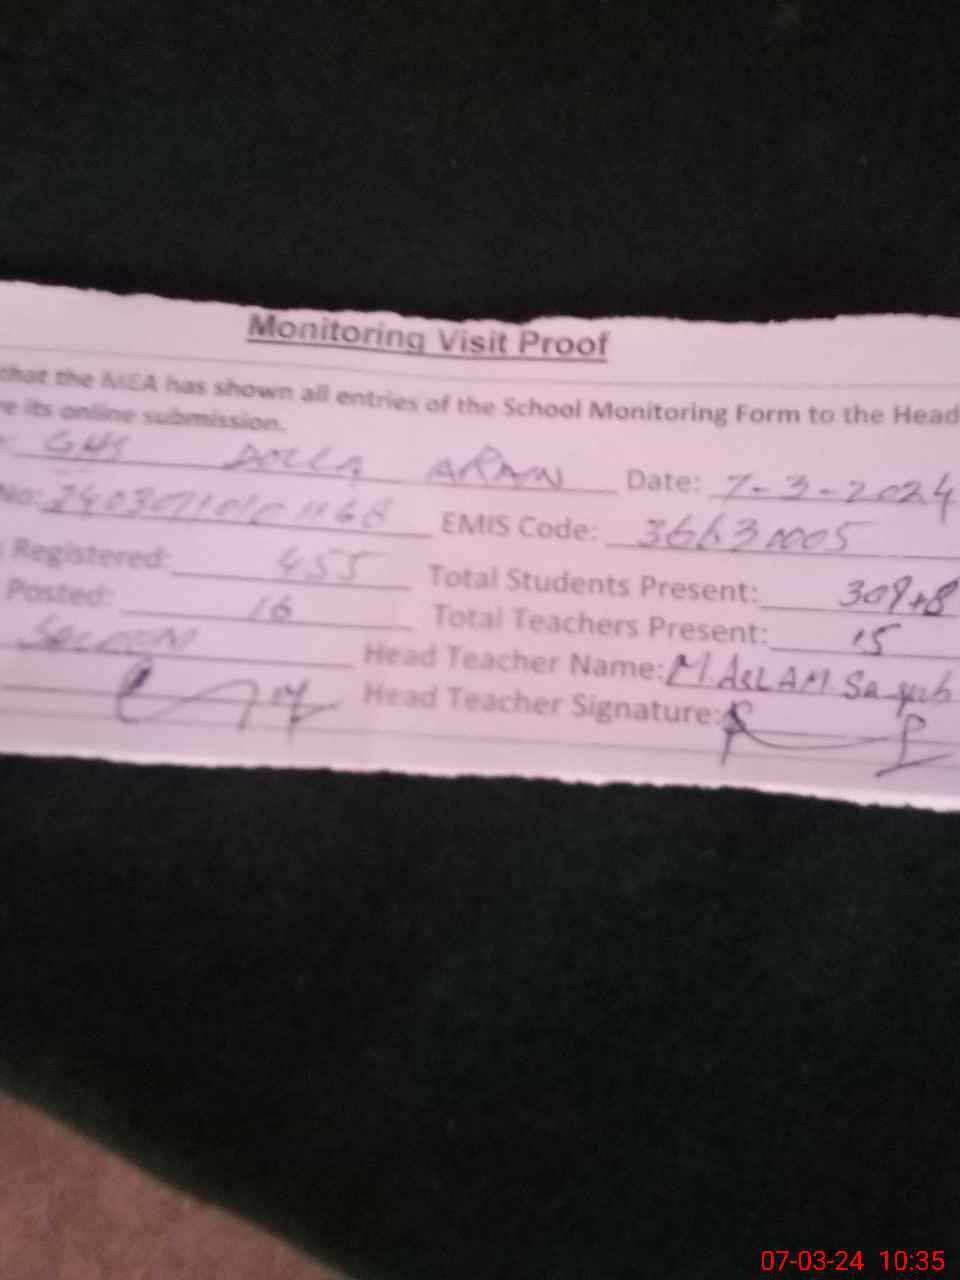 Monitoring Visit Proof
that the MEA has shown all entries of the School Monitoring Form to the Head
re its online submission.
GHS DOLLA ARAIN Date: 7-3-2024
No: EMIS Code: 36630005
Registered: 455 Total Students Present: 309+8
Posted: 16 Total Teachers Present: 15
Head Teacher Name: M. ASLAM
Head Teacher Signature:
07-03-24 10:35